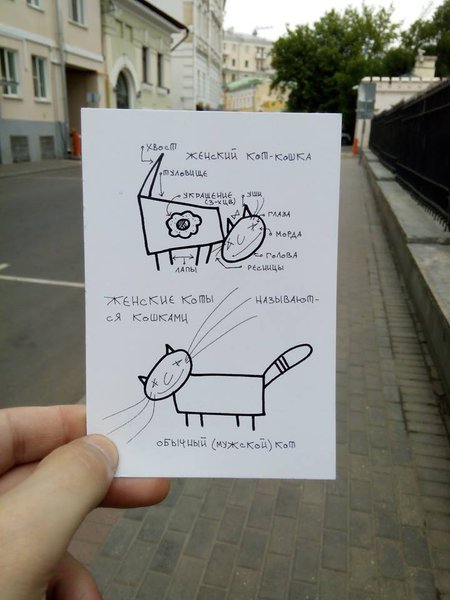 ХВОСТ
ЖЕНСКИЙ КОТ-КОШКА
ТУЛОВИЩЕ
УКРАШЕНИЕ
(3-ХЦВ)
УШИ
ГЛАЗА
МОРДА
ГОЛОВА
ЛАПЫ
РЕСНИЦЫ
ЖЕНСКИЕ КОТЫ НАЗЫВАЮТ-
СЯ КОШКАМИ
ОБЫЧНЫЙ (МУЖСКОЙ) КОТ